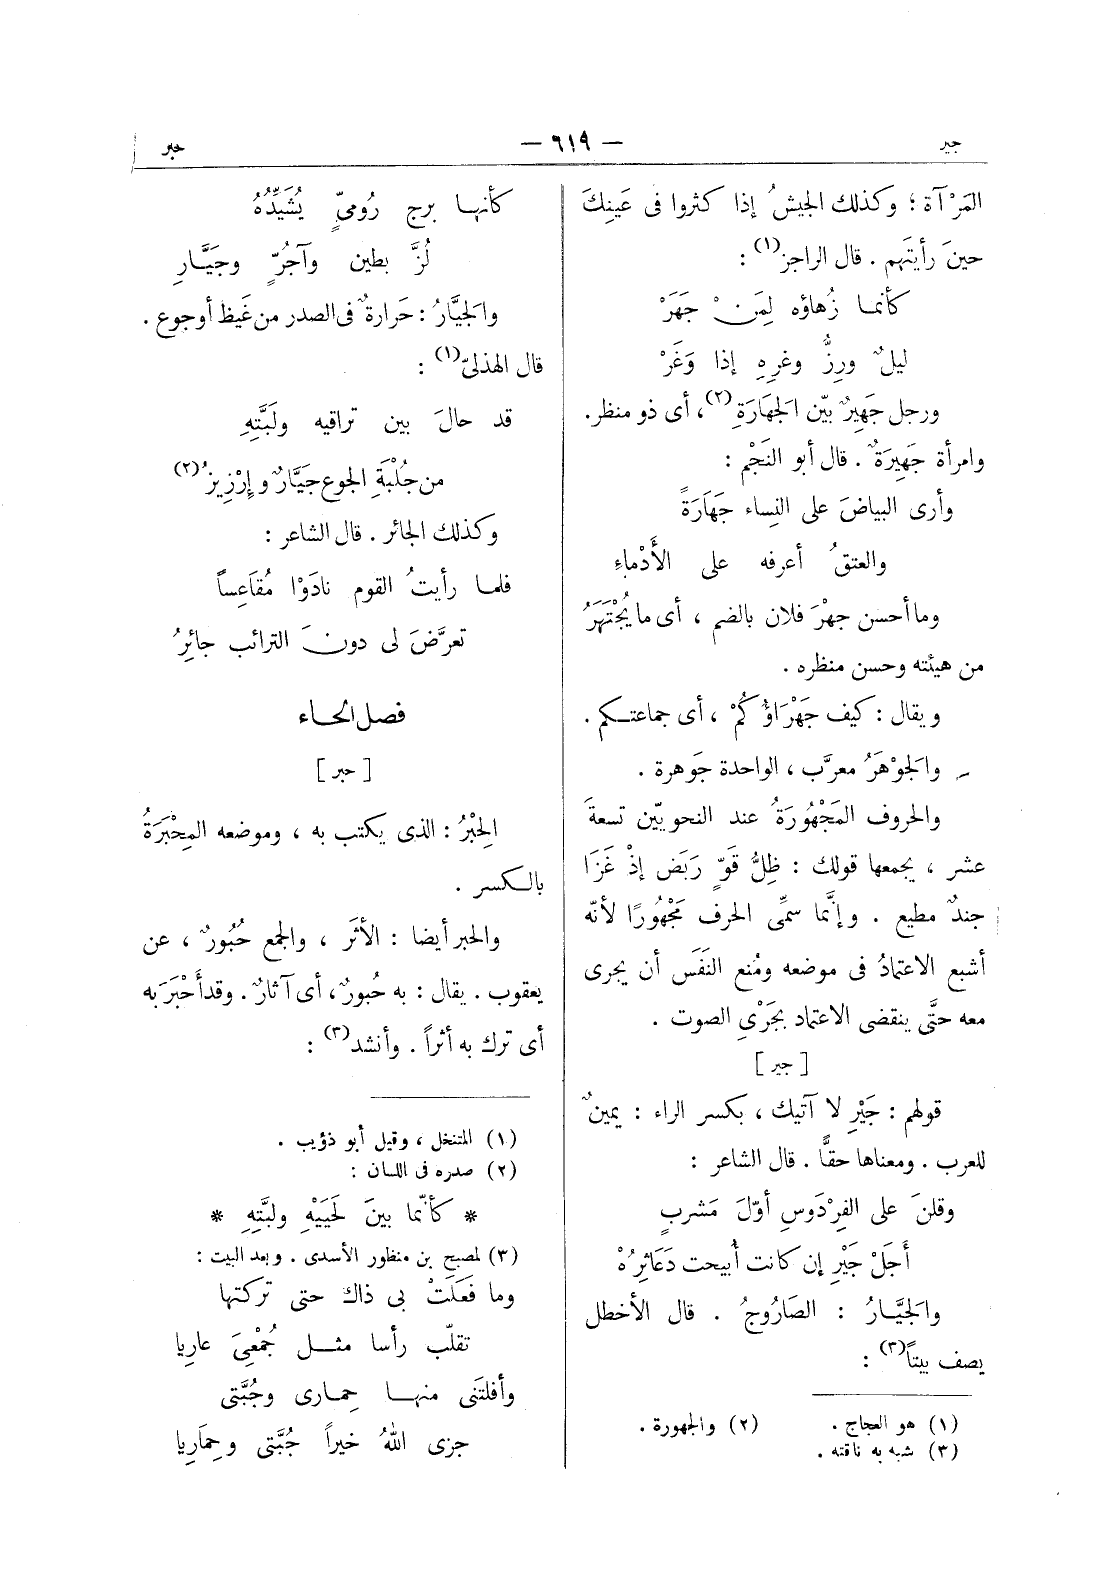 جير
— ٦١٩ —
حبر
المَرْآة ؛ وكذلك الجيشُ إذا كثروا فى عَينِكَ
حينَ رأيتَهم . قال الراجز(١) :
كأنما زُهاؤه لِمَنْ جَهَرْ
ليلٌ ورِزُّ وغرِهِ إذا وَغَرْ
ورجل جَهِيرٌ بيّن الجَهَارَةِ(٢)، أى ذو منظر.
وامرأة جَهِيرَةٌ . قال أبو النَجْم :
وأرى البياضَ على النِساء جَهَارَةً
والعتقُ أعرفه على الأَدْماءِ
وما أحسن جهْرَ فلان بالضم ، أى ما يُجْتَهَرُ
من هيئته وحسن منظره .
ويقال : كيف جَهْرَاؤُكُمْ ، أى جماعتكم .
والجَوْهَرُ معرَّب ، الواحدة جَوهرة .
والحروف المَجْهُورَةُ عند النحويّين تسعةَ
عشر ، يجمعها قولك : ظِلُّ قَوٍّ رَبَض إذْ غَزَا
جندٌ مطيع . وإنَّما سمِّى الحرف مَجْهُورًا لأنّه
أشبع الاعتمادُ فى موضعه ومُنع النَفَس أن يجرى
معه حتَّى ينقضى الاعتماد بجَرْىِ الصوت .
[ جير ]
قولهم : جَيْرِ لا آتيك ، بكسر الراء : يمينٌ
للعرب . ومعناها حقًّا . قال الشاعر :
وقلنَ على الفِرْدَوسِ أوّلَ مَشربٍ
أَجَلْ جَيْرِ إن كانت أُبيحت دَعَاثِرُهْ
والجَيَّارُ : الصَارُوجُ . قال الأخطل
يصف بيتاً(٣) :
(١) هو العجاج . (٢) والجهورة .
(٣) شبه به ناقته .
كأنها برج رُومىٍّ يُشَيِّدُهُ
لُزَّ بطين وآجُرٍّ وجَيَّارِ
والجَيَّارُ : حَرارةٌ فى الصدر من غَيظ أو جوع .
قال الهذلىّ(١) :
قد حالَ بين تراقيه ولَبَّتِهِ
من جُلْبَةِ الجوع جَيَّارٌ وإرْزِيزُ(٢)
وكذلك الجائر . قال الشاعر :
فلما رأيتُ القوم نادَوْا مُقاعِساً
تعرَّضَ لى دونَ الترائب جائِرُ
فصل الحاء
[ حبر ]
الحِبْرُ : الذى يكتب به ، وموضعه المِحْبَرَةُ
بالكسر .
والحبر أيضا : الأثَر ، والجمع حُبُورٌ ، عن
يعقوب . يقال : به حُبورٌ، أى آثارٌ . وقد أَحْبَرَ به
أى ترك به أثراً . وأنشد(٣) :
(١) المتنخل ، وقيل أبو ذؤيب .
(٢) صدره فى اللسان :
* كأنّما بينَ لَحَيَيْهِ ولبَّتِهِ *
(٣) لمصبح بن منظور الأسدى . وبعد البيت :
وما فَعَلَتْ بى ذاك حتى تركتها
تقلّب رأسا مثل جُمْعِىَ عاريا
وأفلتَنى منها حِمارى وجُبَّتى
جزى اللهُ خيراً جُبَّتى وحِمَاريا